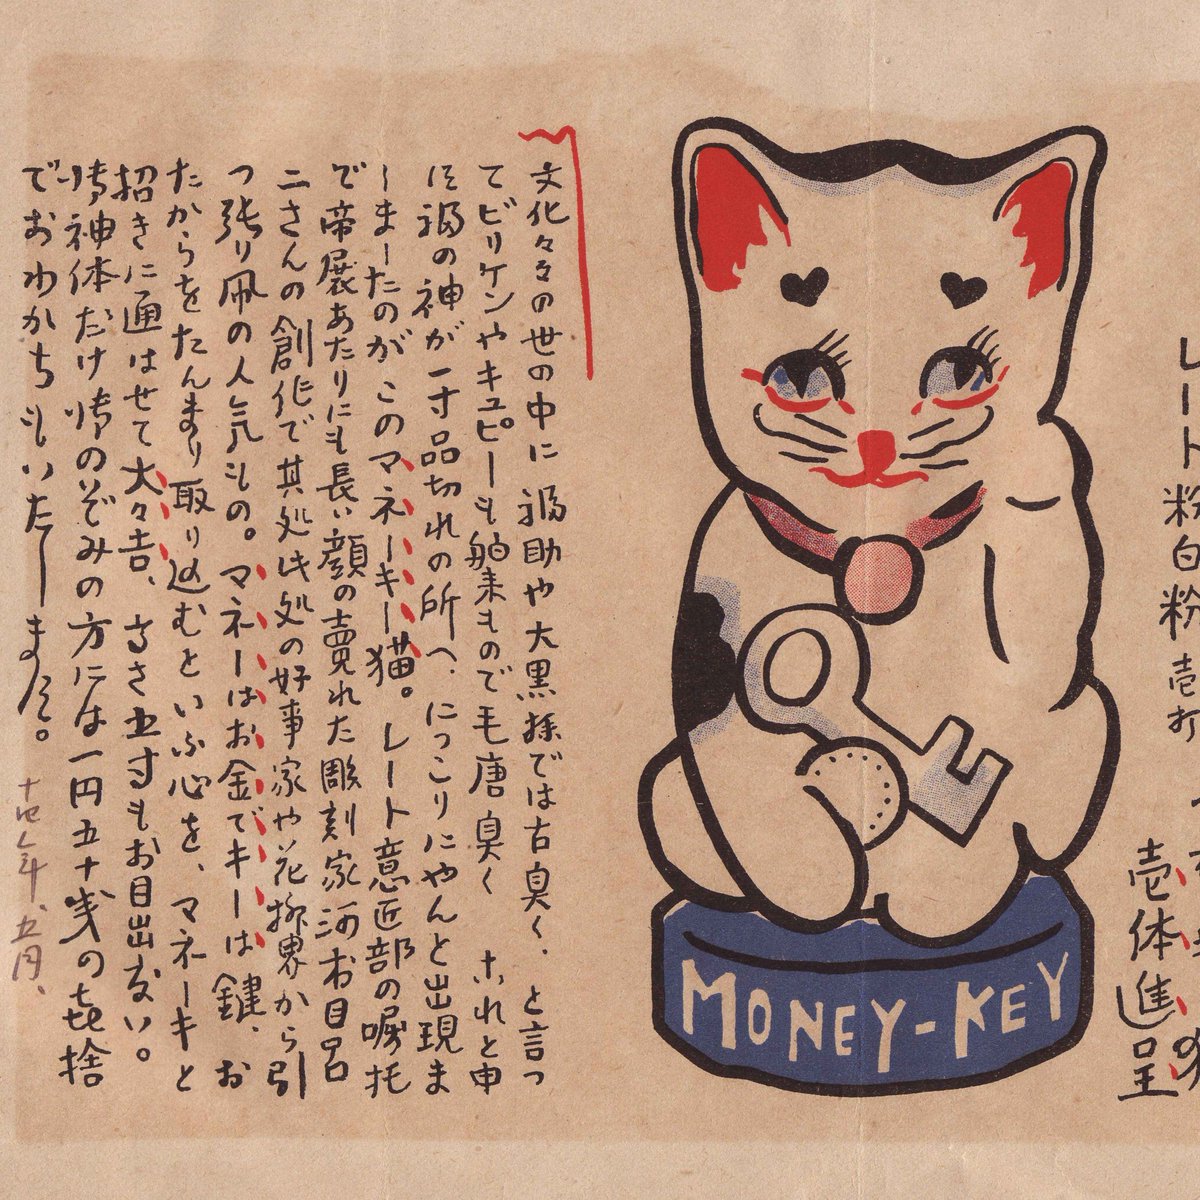 レート粉白粉壱打
壱体進呈
MONEY-KEY
文化々々の世の中に福助や大黒様では古臭く、と言つ
てビリケンやキユピーも舶来もので毛唐臭く と申
に福の神が一寸品切れの所へ、にっこりにやんと出現ま
しましたのがこのマネーキー猫。レート意匠部の嘱托
で帝展あたりにも長い顔の賣れた彫刻家河村目呂
二さんの創作で其処此処の好事家や花柳界から引
つ張り凧の人気もの。マネーはお金でキーは鍵、お
たからをたんまり取り込むといふ心を、マネーキと
招きに通はせて大々吉、高さ五寸もお目出度い。
御神体だけ御のぞみの方には一円五十銭の喜捨
でおわかちもいたします。
十四年、五月、